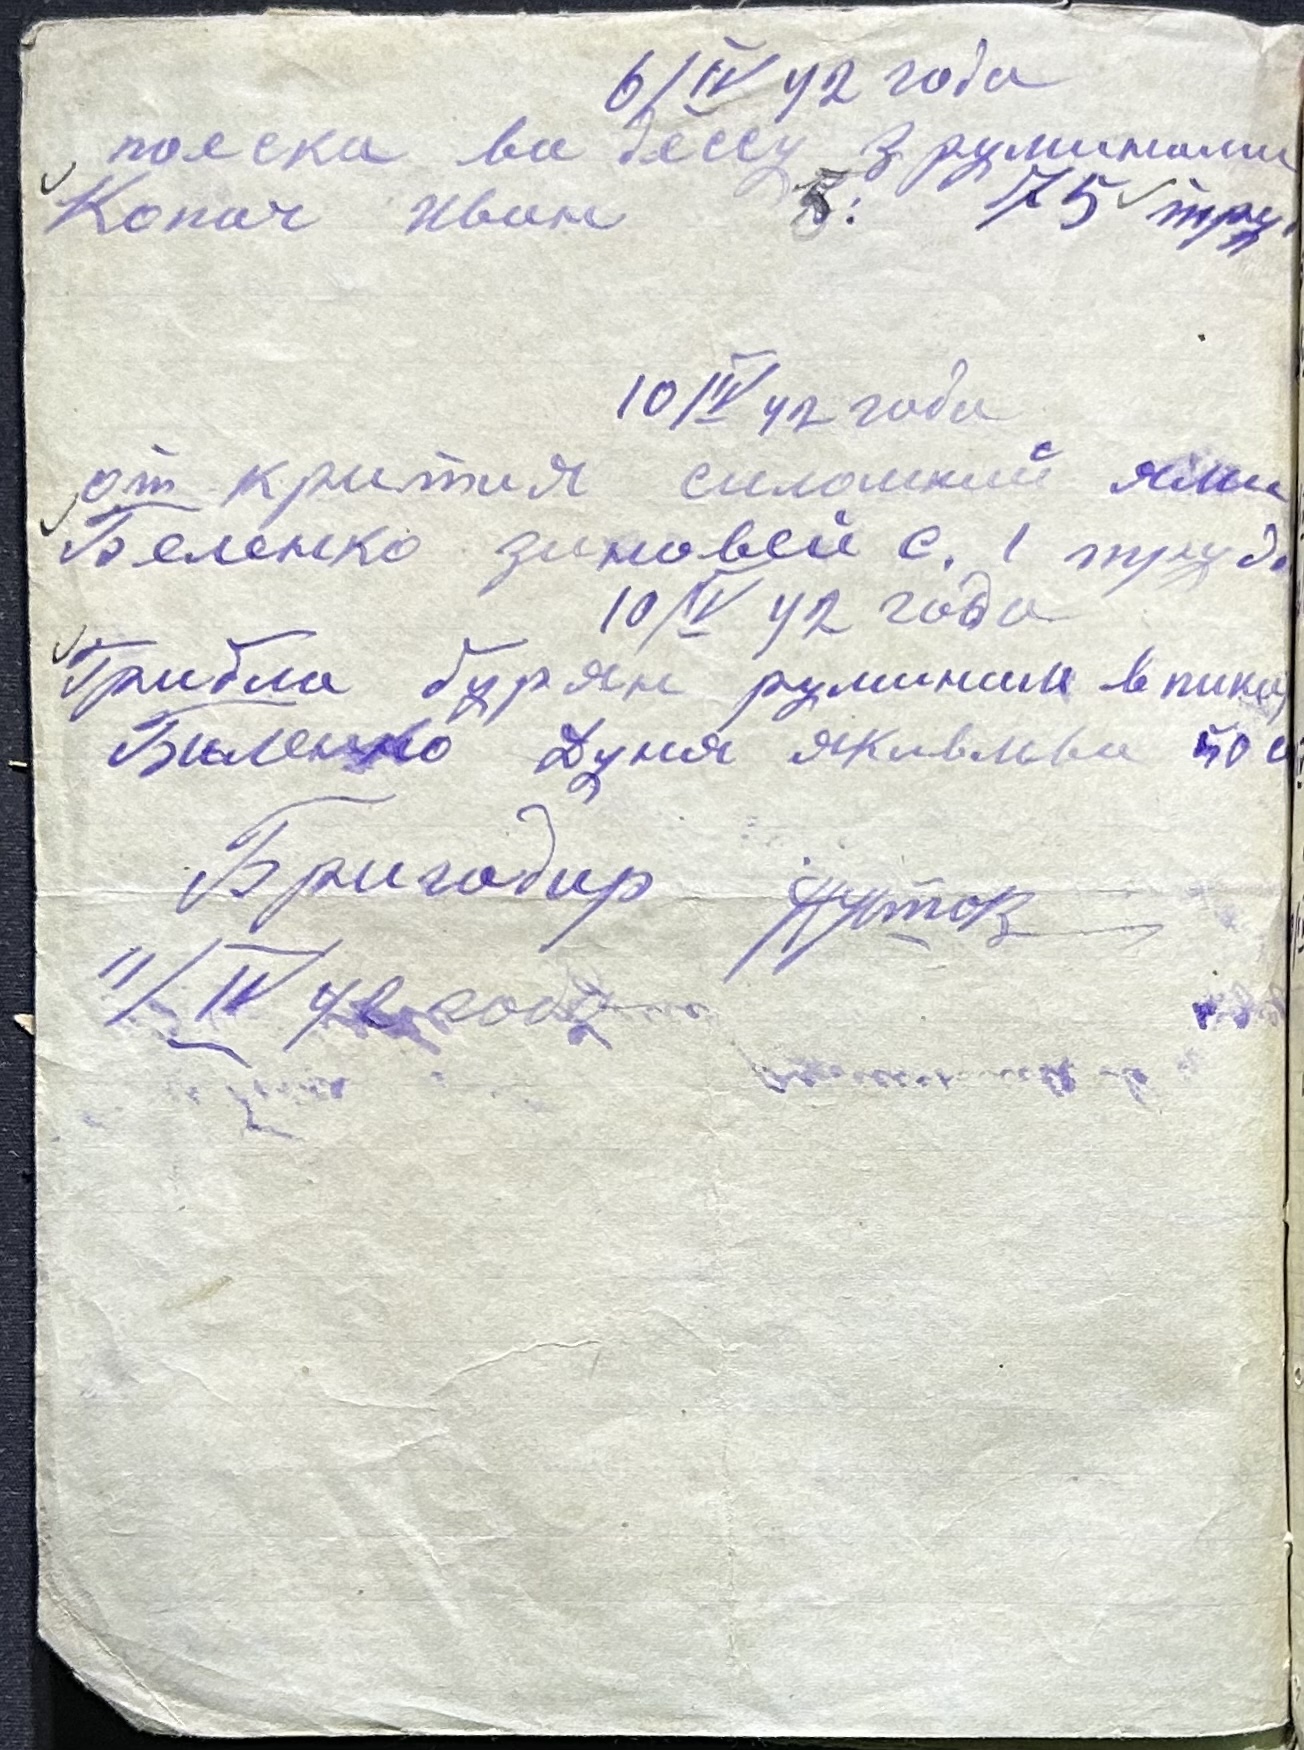 6/IV 42 года
поєска ва Одессу з руминами
Копач Иван 75 труд
10/IV 42 года
от крития силоснкий ями
Беленко зиновей С. 1 трудо
10/IV 42 года
Грибла бурян руминам в пика
Биленко Дуня якивлива 50 с
Бригадир
11/IV 42 года